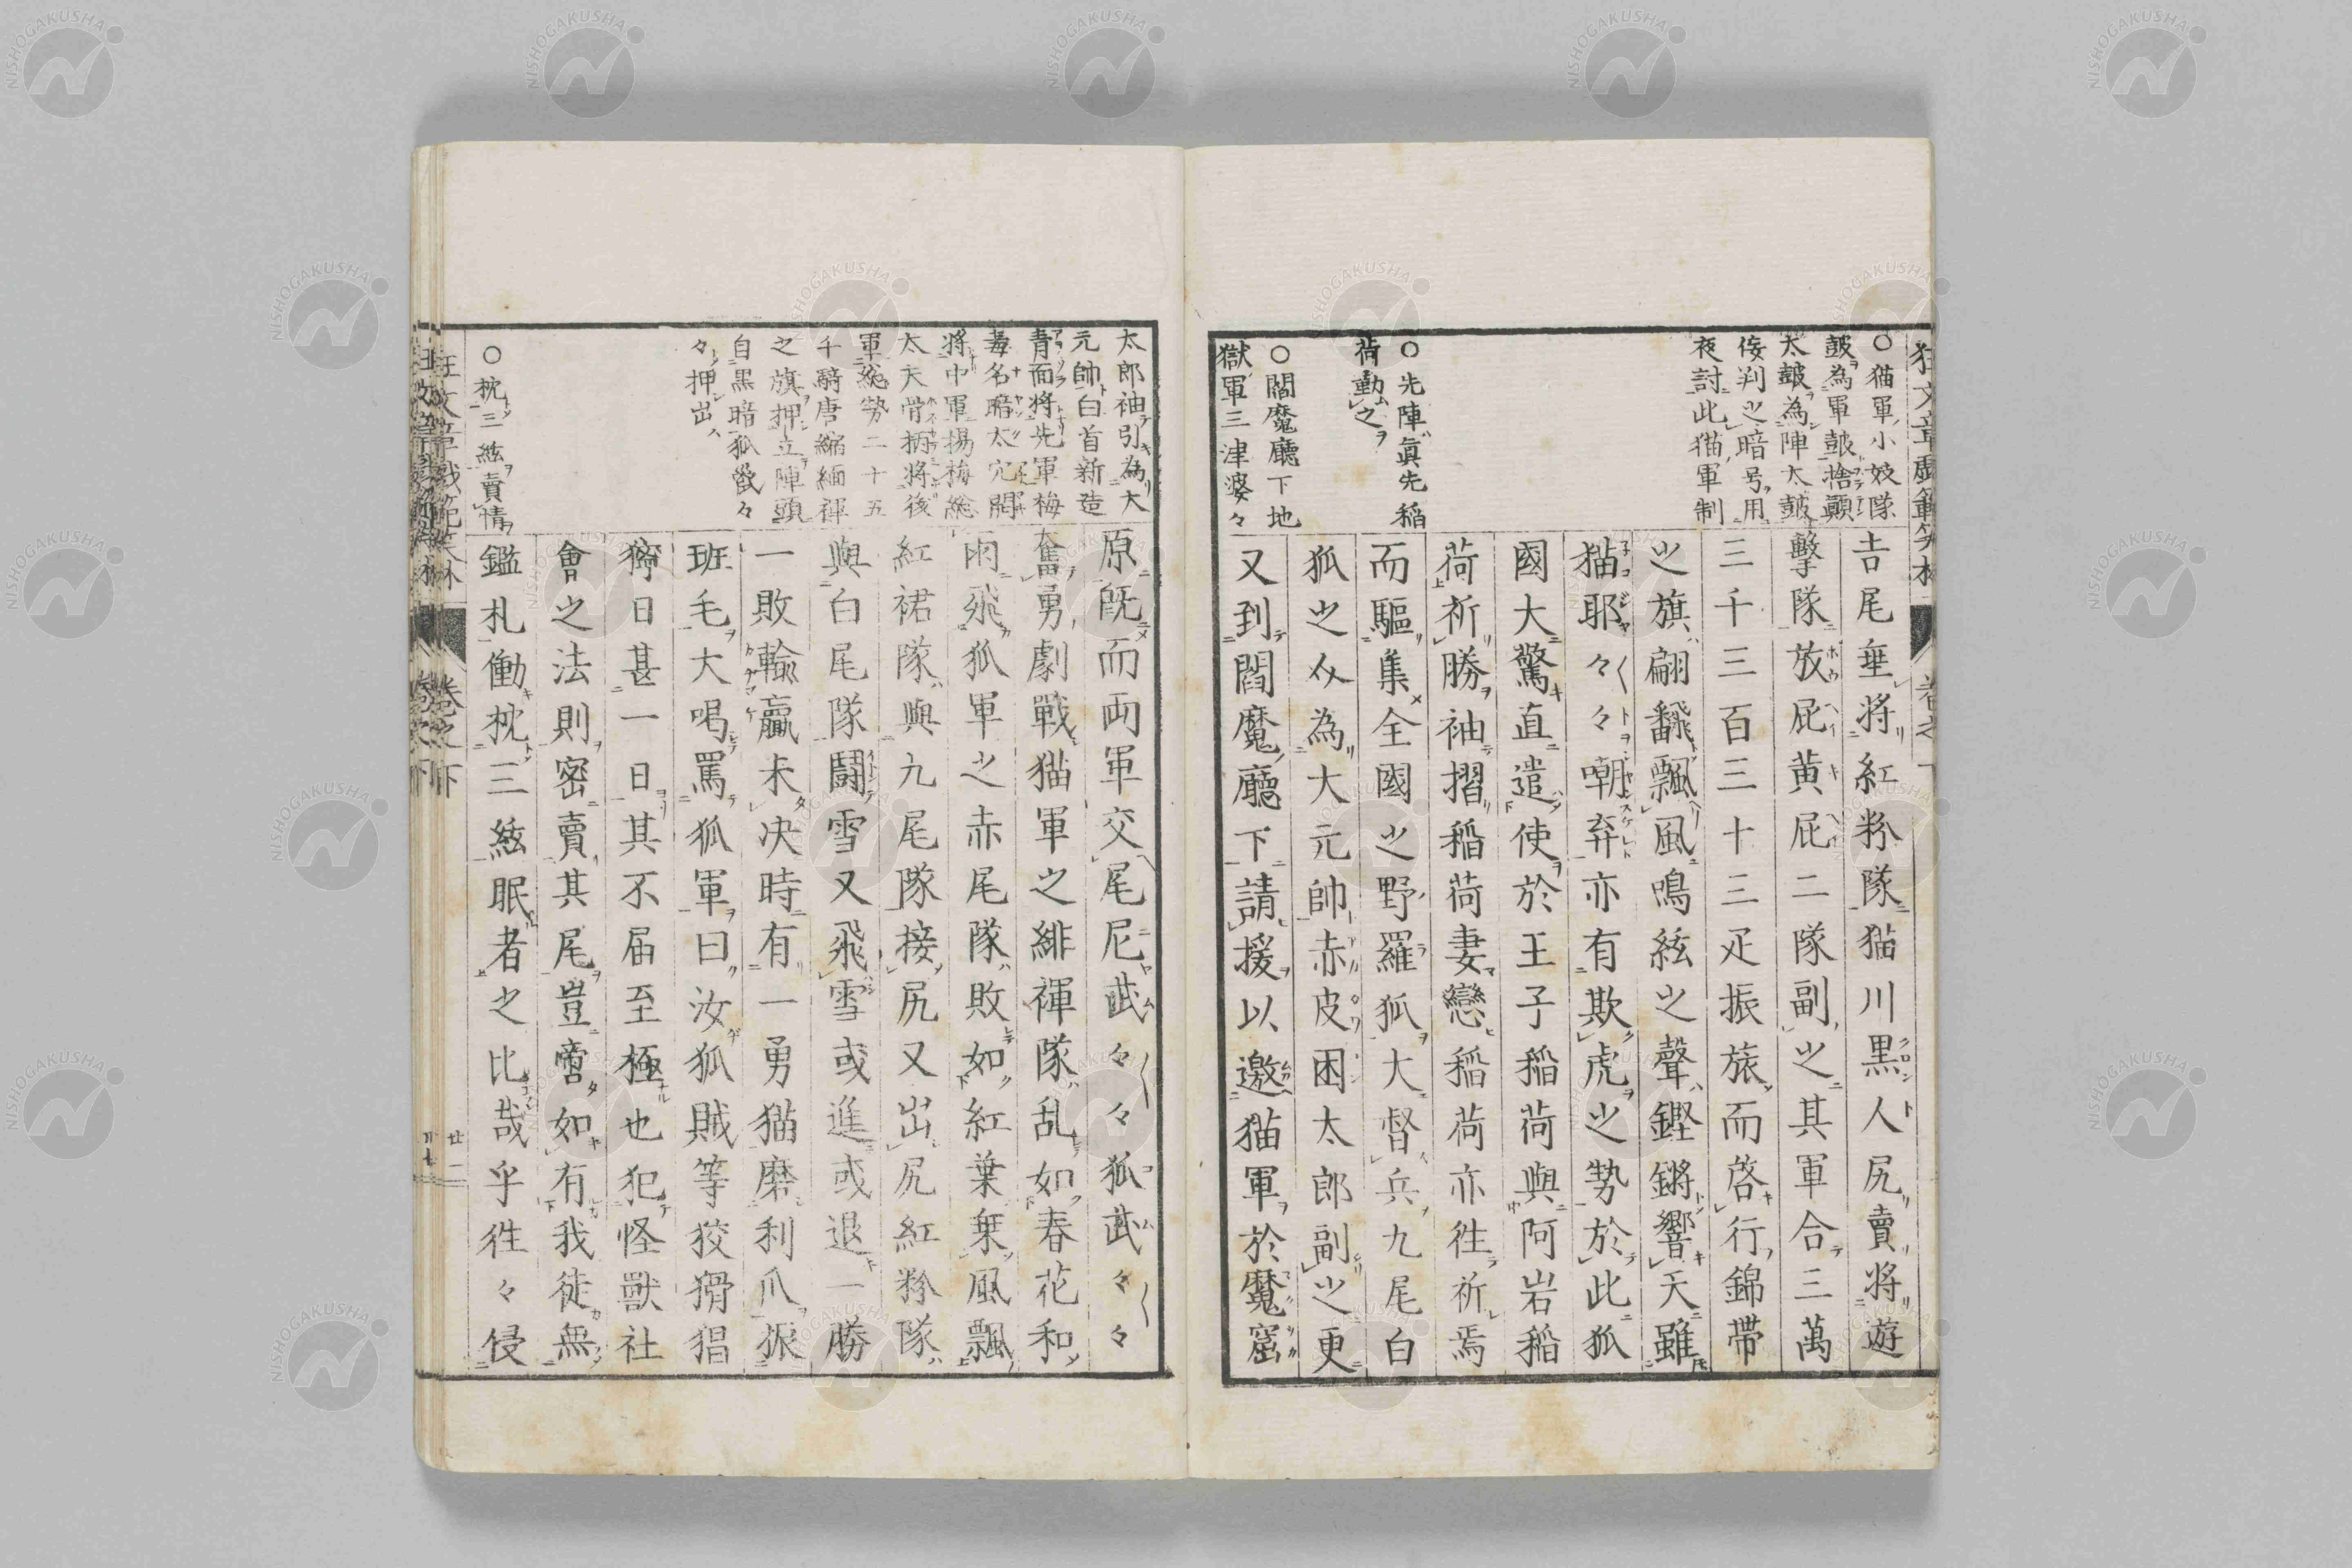 ○猫軍小妓隊
皷為軍皷捨顚
太皷為陣太皷
侫判之暗号用
夜討此猫軍制
吉尾垂將紅粉隊猫川黒人尻賣將遊
擊隊放屁黄屁二隊副之其軍合三萬
三千三百三十三疋振旅而啓行錦帶
之旗翩飜飄風鳴絃之聲鏗鏘響天雖
猫耶々々嘲弃亦有欺虎之勢於此狐
國大驚直遣使於王子稲荷與阿岩稲
○先陣眞先稲
荷動之
荷祈勝袖摺稲荷妻戀稲荷亦徃祈焉
而驅集全國之野羅狐大督兵九尾白
狐之从為大元帥赤皮困太郎副之更
○閻魔廳下地
獄軍三津婆々
又到閻魔廳下請援以邀猫軍於魔窟
太郎袖引為大
元帥白首新造
青面將先軍梅
毒名暗太穴閣
將中軍揚梅総
太夫骨柄將後
軍総勢二十五
千騎唐縮緬褌
之旗押立陣頭
自黒暗狐鼓々
々押出
原既而両軍交尾尼武々々狐武々々
奮勇劇戰猫軍之緋褌隊乱如春花和
雨飛狐軍之赤尾隊敗如紅葉棄風飄
紅裙隊與九尾隊接尻又出尻紅粉隊
與白尾隊鬪雪又飛雪或進或退一勝
一敗輸贏未决時有一勇猫磨利爪振
班毛大喝罵狐軍曰汝狐賊等狡猾猖
獝日甚一日其不届至極也犯怪獸社
會之法則密賣其尾豈啻如有我徒無
○枕三絃賣情
鑑札働枕三絃眠者之比哉乎徃々侵
狂文章戯範笑林
卷之下
廿二